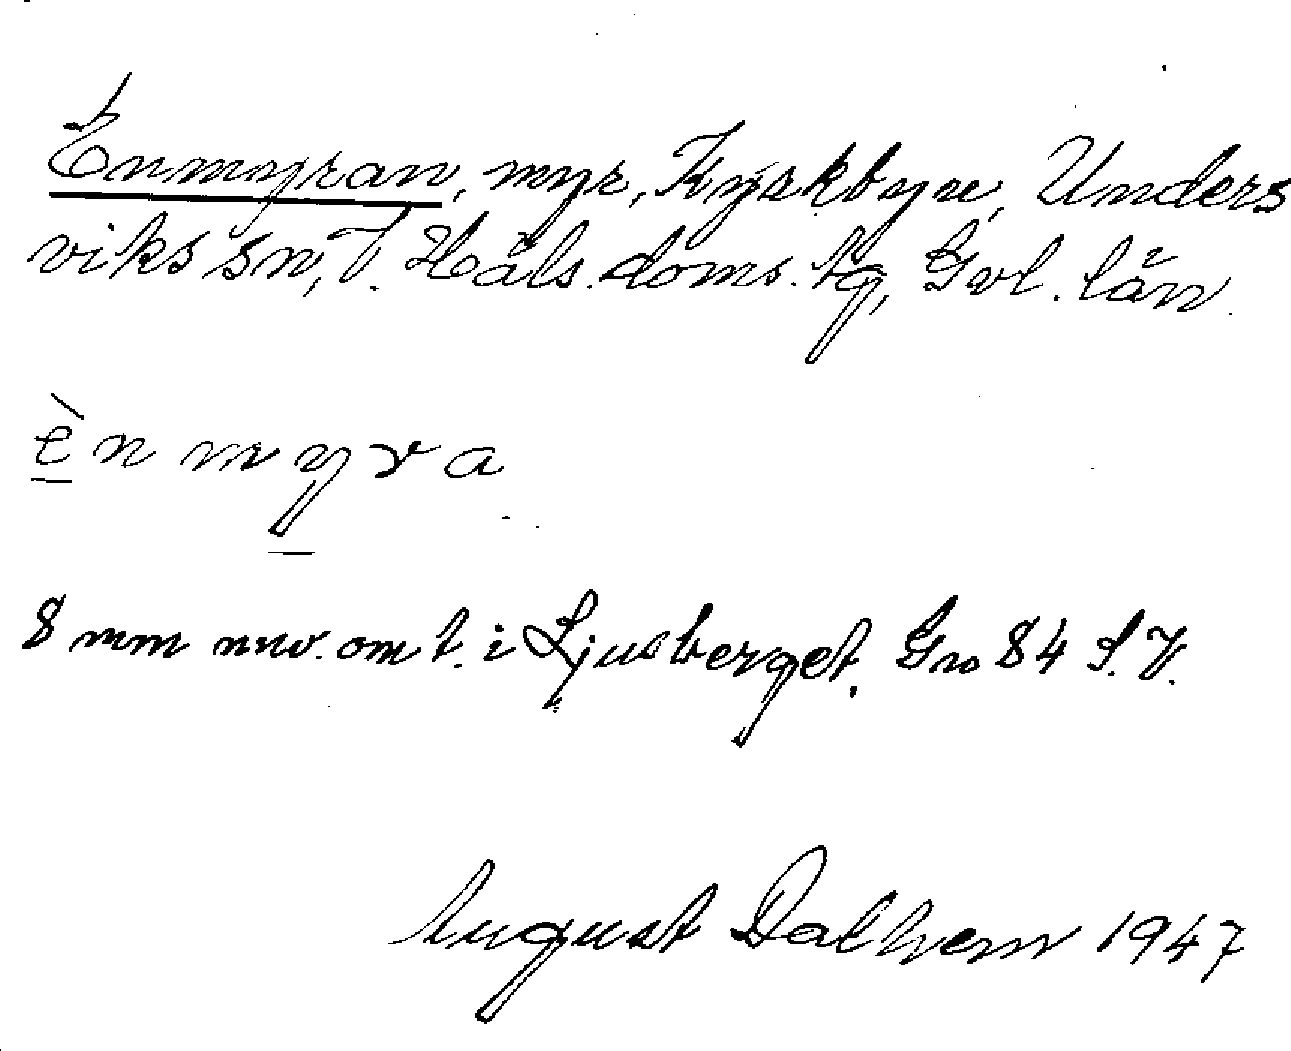 Enmyran, myr, Kyrkbyn, Unders
viks sn, V. Häls. doms. tg, Gvl. län.
è n m y r a
8 mm nnv. om t. i Ljusberget. Gro 84 S.V.
August Dalhem 1947